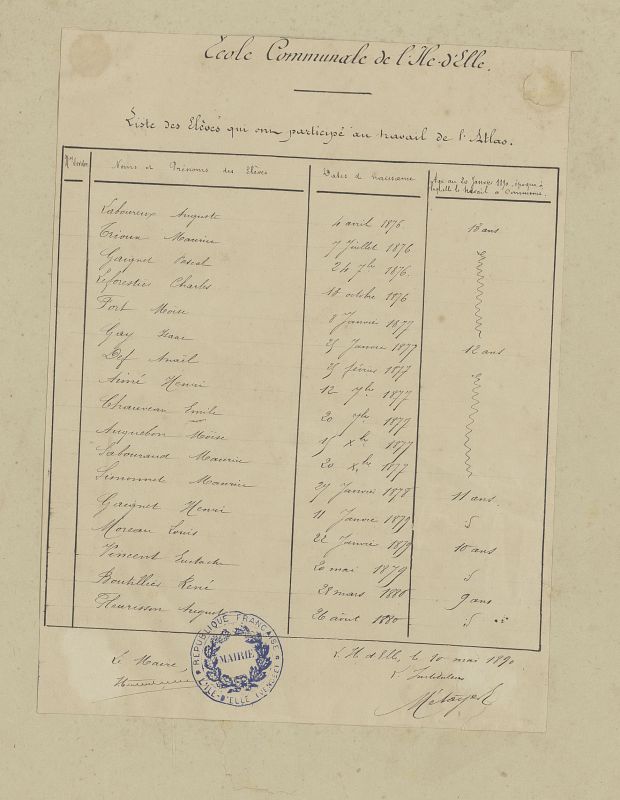 Ecole Communale de l'Ile-d'Elle.
Liste des Elèves qui ont participé au travail de l'Atlas.
Nos d'ordre Noms et Prénoms des Elèves Dates de naissance Age au 20 Janvier 1890, époque à laquelle le travail a commencé.
Laboureux Auguste 4 avril 1876 13 ans
Trioux Maurice 7 Juillet 1876
Gaignet Pascal 24 7bre 1876.
Leforestier Charles 18 octobre 1876
Fort Moïse 8 Janvier 1877
Gay Isaac 25 Janvier 1877 12 ans
Def Anaël 25 février 1877
Aimé Henri 12 7bre 1877
Chauveau Emile 20 7bre 1877
Auguebon Moïse 15 Xbre 1877
Sabouraud Maurice 20 Xbre 1877
Simonnet Maurice 27 Janvier 1878 11 ans.
Gaignet Henri 11 Janvier 1879
Moreau Louis 22 Janvier 1879 10 ans
Vincent Eustache 20 mai 1879
Boutillier René 28 mars 1880 9 ans
Fleurisson Auguste 26 août 1880
Le Maire
L'Ile d'Elle, le 10 mai 1890
L'Instituteur
RÉPUBLIQUE FRANÇAISE
MAIRIE
L'ILE-D'ELLE (VENDÉE)